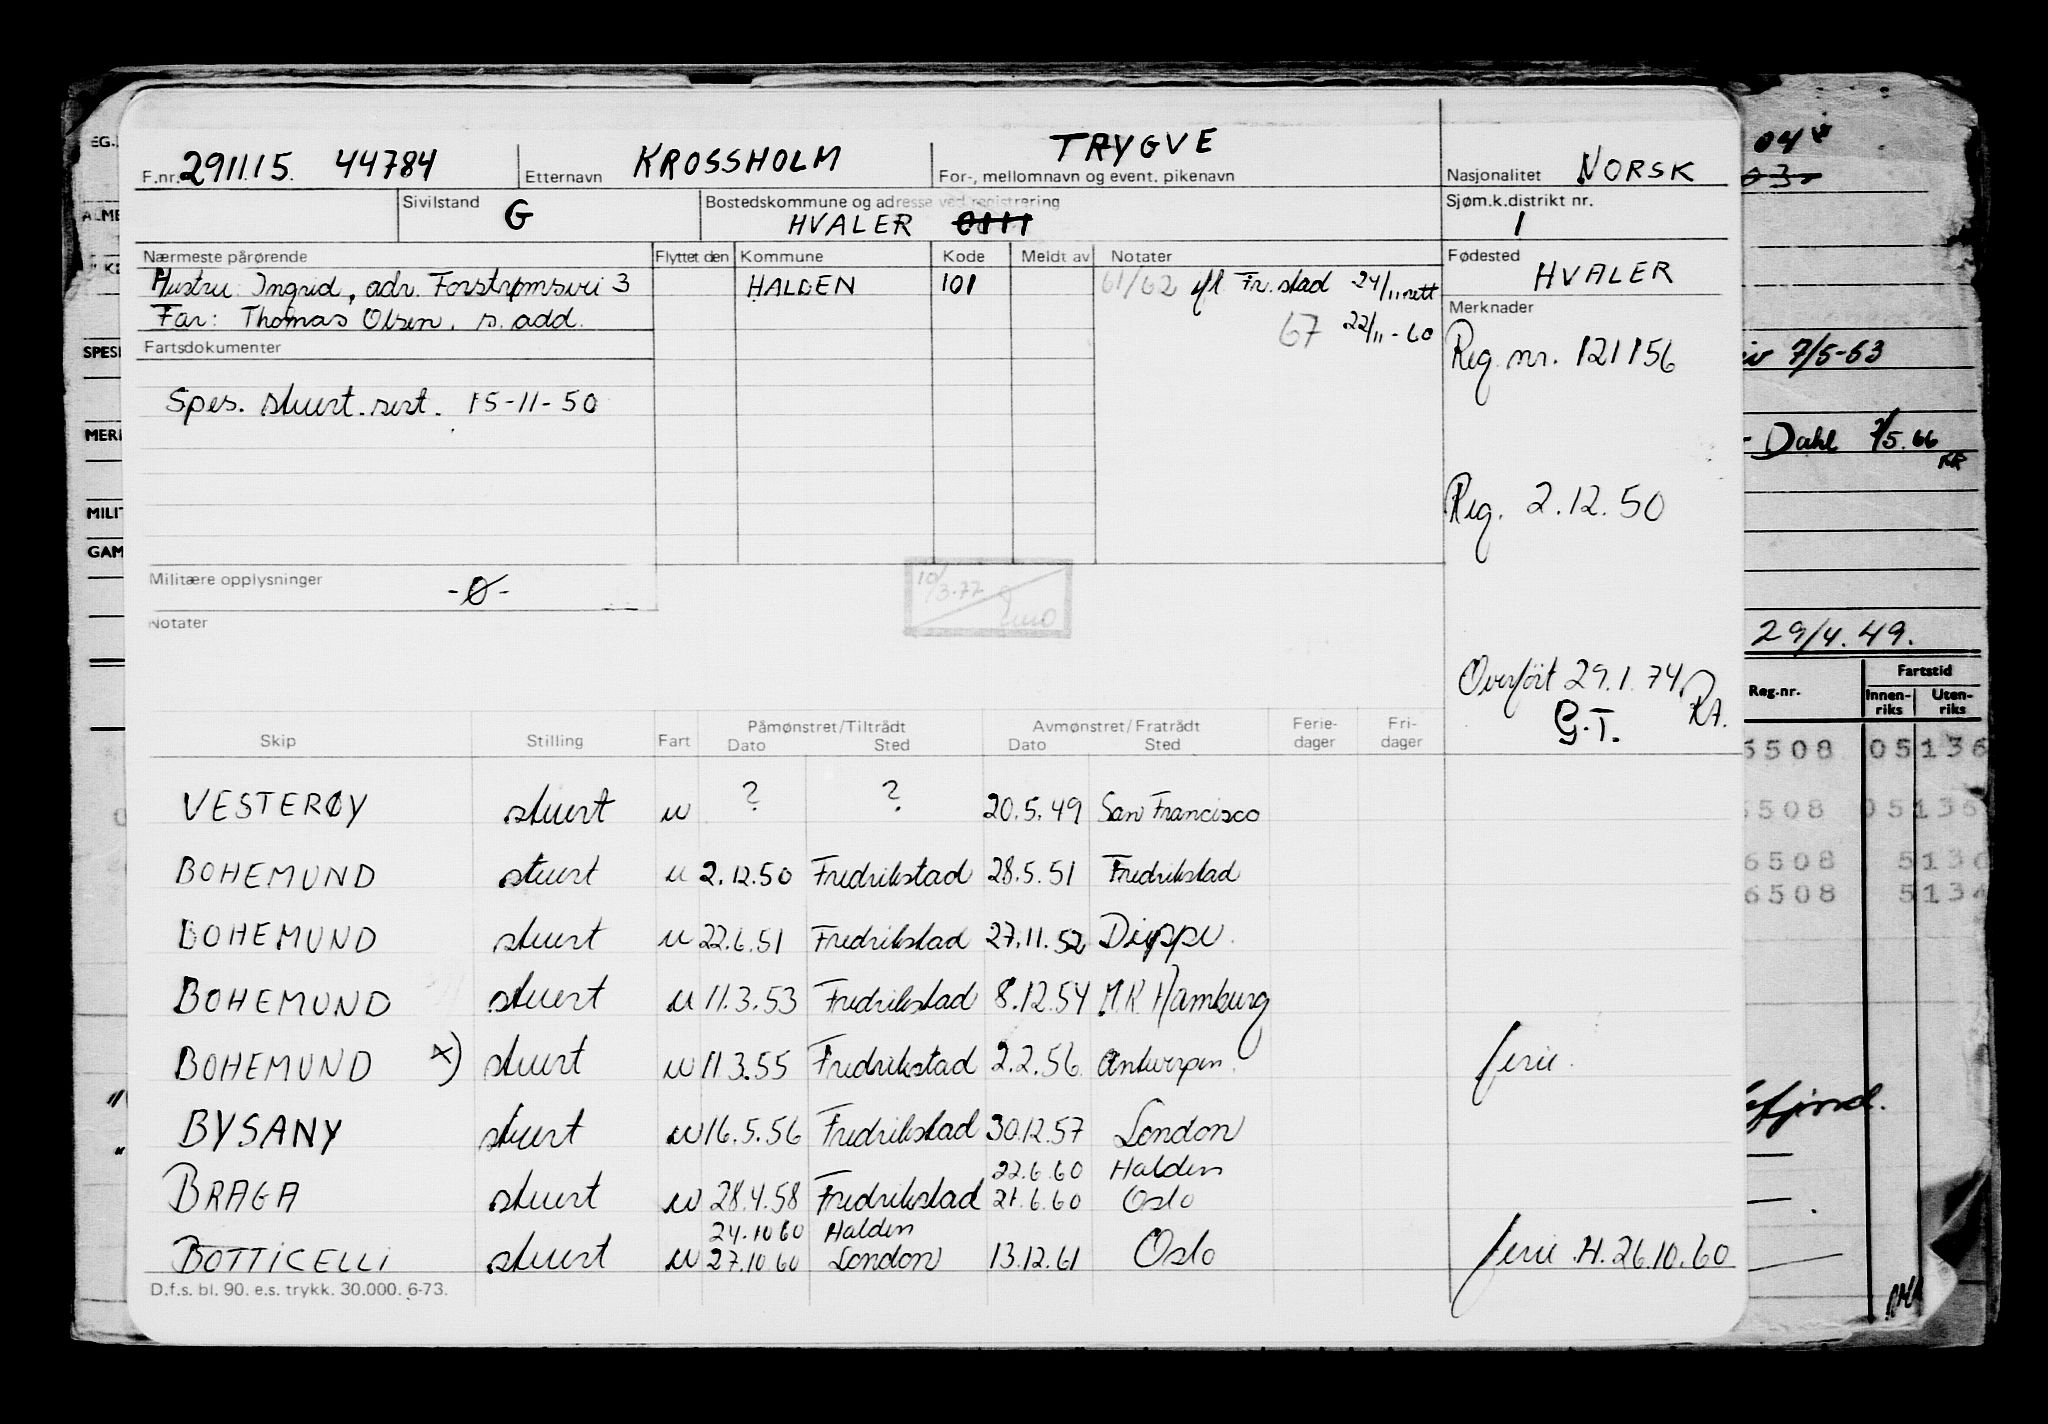 F.nr. 291115. 44784 Etternavn KROSSHOLM For-, mellomnavn og event. pikenavn TRYGVE Nasjonalitet NORSK
Sivilstand G Bostedskommune og adresse ved registrering HVALER 0111 Sjøm.k.distrikt nr. 1
Nærmeste pårørende Flyttet den Kommune Kode Meldt av Notater Fødested HVALER
Hustru Ingrid, adr. Forstrømsvei 3 HALDEN 101 61/62 Fr.stad 24/11 nett
Far: Thomas Olsen, s. add. 67 22/11-60
Merknader
Reg. nr. 121156
Fartsdokumenter
Spes. stuert.sert. 15-11-50
Reg. 2.12.50
Militære opplysninger -0-
10/3-77
Notater
Overført 29.1.74 RA.
G.T.
Skip Stilling Fart Påmønstret/Tiltrådt Avmønstret/Fratrådt Ferie-dager Fri-dager
Dato Sted Dato Sted
VESTERØY stuert u ? ? 20.5.49 San Francisco
BOHEMUND stuert u 2.12.50 Fredrikstad 28.5.51 Fredrikstad
BOHEMUND stuert u 22.6.51 Fredrikstad 27.11.52 Dieppe.
BOHEMUND stuert u 11.3.53 Fredrikstad 8.12.54 M.K. Hamburg
BOHEMUND x) stuert u 11.3.55 Fredrikstad 2.2.56 Antwerpen. ferie.
BYSANY stuert u 16.5.56 Fredrikstad 30.12.57 London
22.6.60 Halden
BRAGA stuert u 28.4.58 Fredrikstad 21.6.60 Oslo
24.10.60 Halden
BOTTICELLI stuert u 27.10.60 London 13.12.61 Oslo ferie H. 26.10.60
D.f.s. bl. 90. e.s. trykk. 30.000. 6-73.
04
03
7/5-63
Dahl 2/5.66
29/4.49.
Reg.nr. Fartstid
Innen-riks Uten-riks
6508 05136
6508 05136
6508 5136
6508 5134